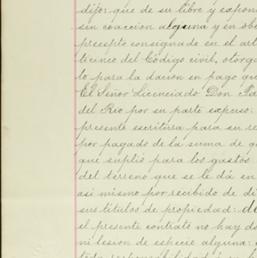 dijo: que de su libre y espon
sin coaccion alguna y en ob
precepto consignado en el art
tecinco del Código civil, otorg
to para la dacion en pago que
El Señor licenciado Don
del Rio por su parte expuso:
presente escritura para su re
por pagado de la suma de
que suplió para los gastos
del terreno que se le dá en
asi mismo por recibido de di
sus titulos de propiedad: de
el presente contrato no hay do
ni lesion de especie alguna: